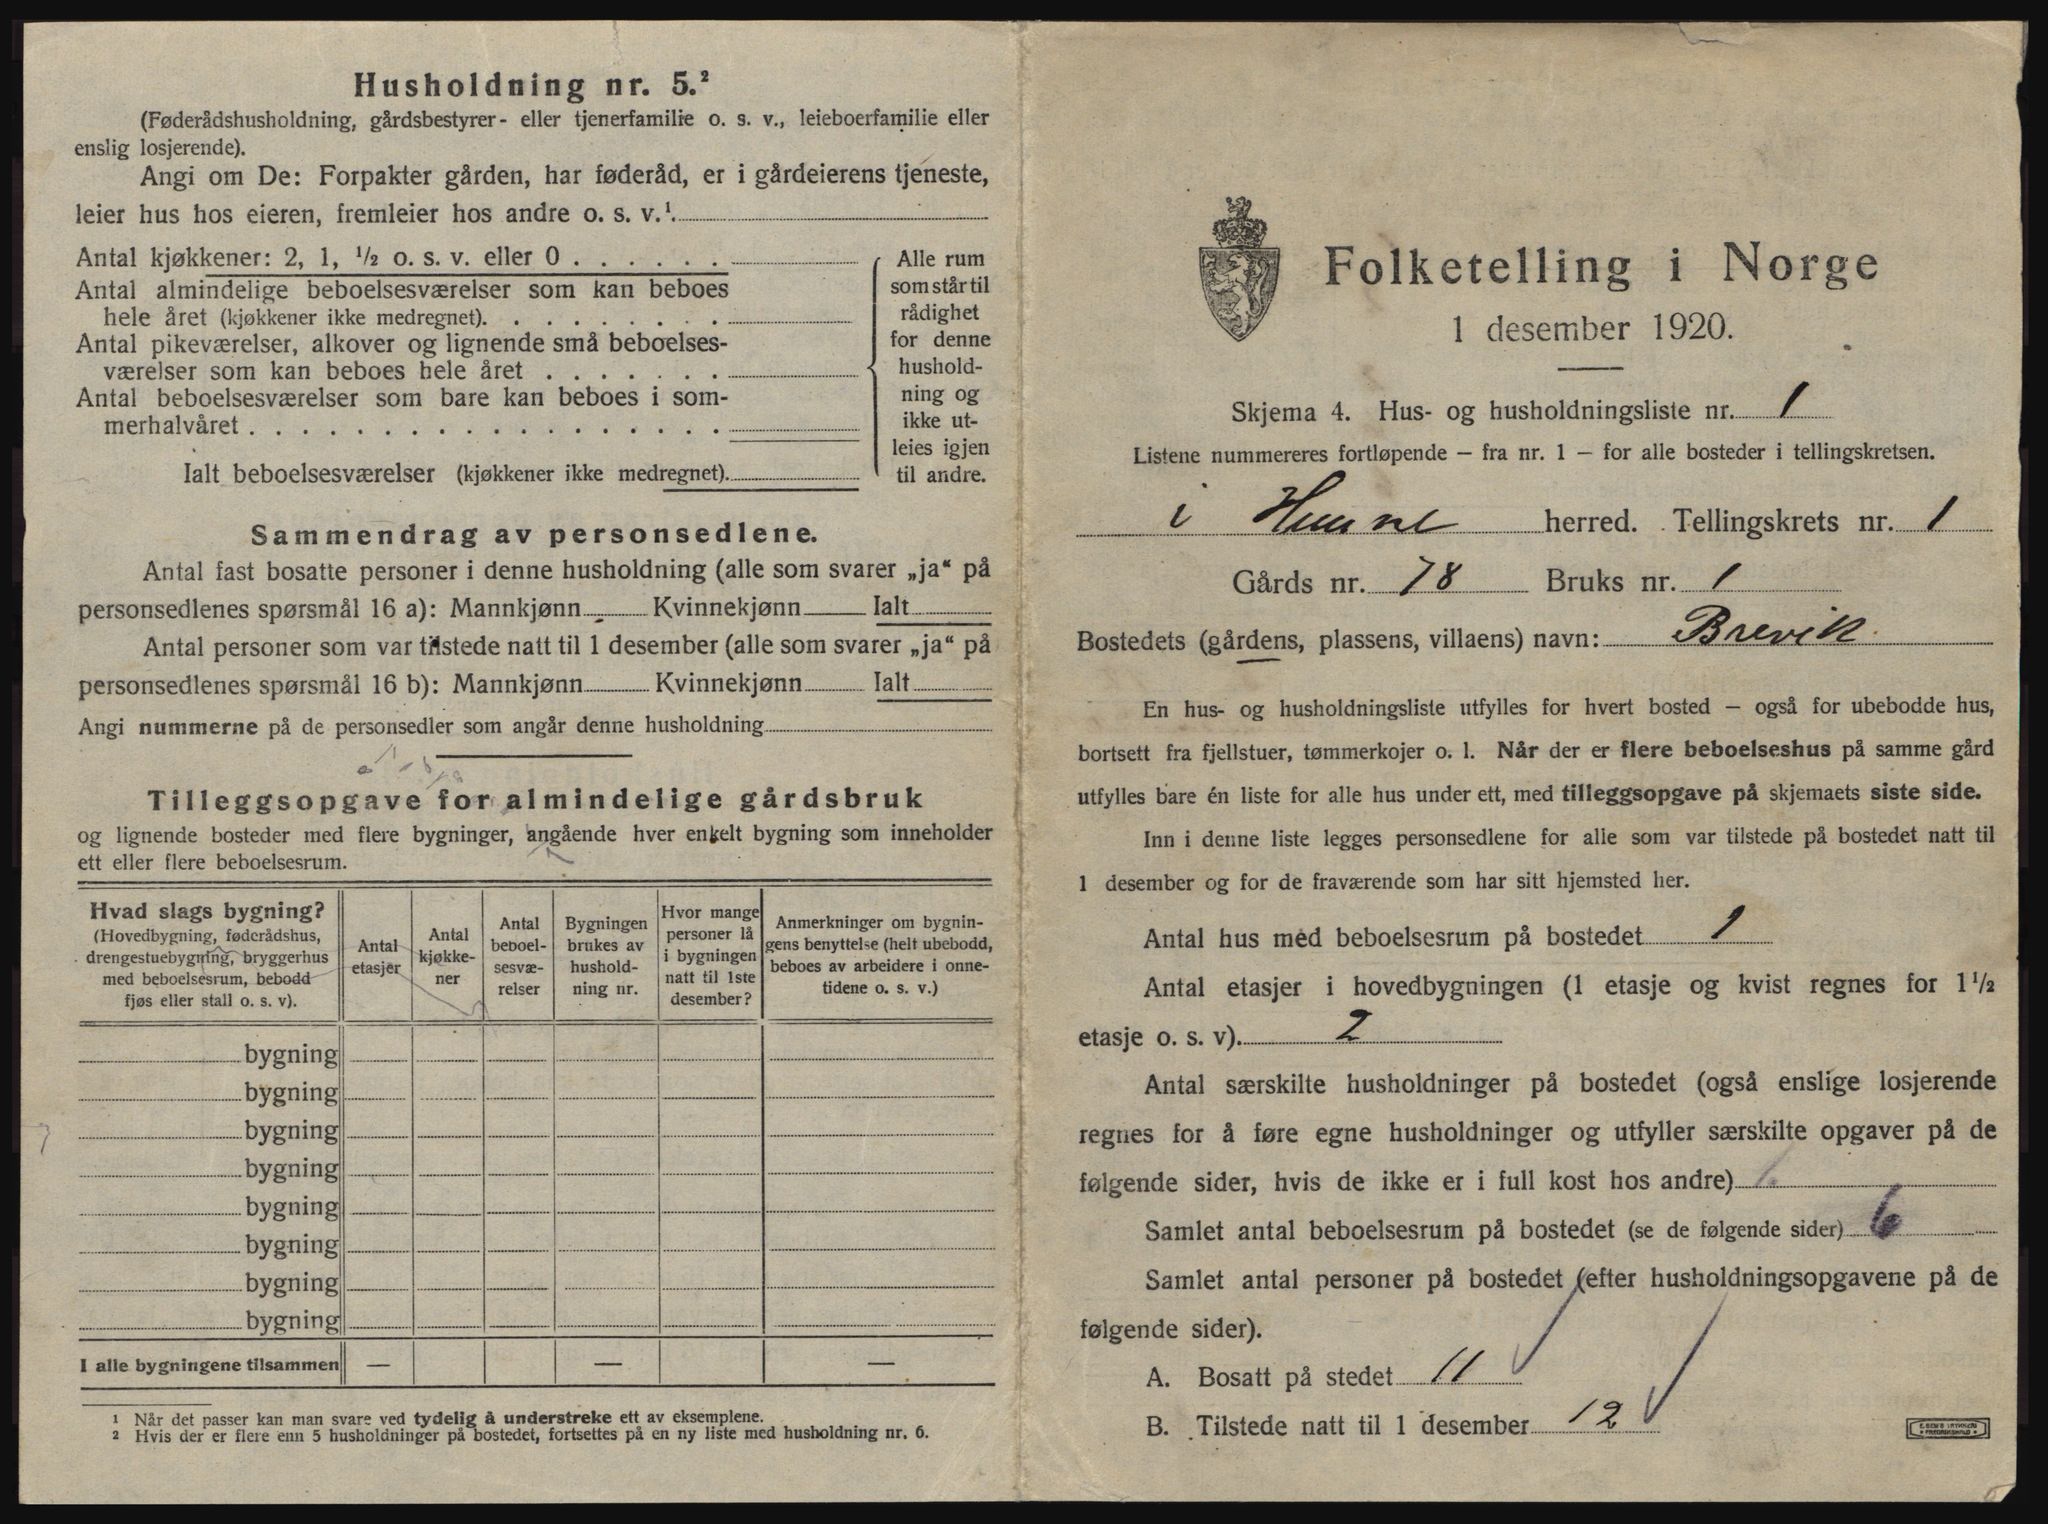 Husholdning nr. 5.²
(Føderådshusholdning, gårdsbestyrer- eller tjenerfamilie o. s. v., leieboerfamilie eller
enslig losjerende).
Angi om De: Forpakter gården, har føderåd, er i gårdeierens tjeneste,
leier hus hos eieren, fremleier hos andre o. s. v.¹
Antal kjøkkener: 2, 1, ½ o. s. v. eller 0 . . . . . .
Antal almindelige beboelsesværelser som kan beboes
hele året (kjøkkener ikke medregnet). . . . . . . . .
Antal pikeværelser, alkover og lignende små beboelses-
værelser som kan beboes hele året . . . . . . .
Antal beboelsesværelser som bare kan beboes i som-
merhalvåret . . . . . . . . . . . . . . . . . .
Ialt beboelsesværelser (kjøkkener ikke medregnet).
Alle rum
som står til
rådighet
for denne
hushold-
ning og
ikke ut-
leies igjen
til andre.
Sammendrag av personsedlene.
Antal fast bosatte personer i denne husholdning (alle som svarer „ja“ på
personsedlenes spørsmål 16 a): Mannkjønn Kvinnekjønn Ialt
Antal personer som var tilstede natt til 1 desember (alle som svarer „ja“ på
personsedlenes spørsmål 16 b): Mannkjønn Kvinnekjønn Ialt
Angi nummerne på de personsedler som angår denne husholdning
Tilleggsopgave for almindelige gårdsbruk
og lignende bosteder med flere bygninger, angående hver enkelt bygning som inneholder
ett eller flere beboelsesrum.
Hvad slags bygning?
(Hovedbygning, føderådshus,
drengestuebygning, bryggerhus
med beboelsesrum, bebodd
fjøs eller stall o. s. v).
Antal
etasjer
Antal
kjøkke-
ner
Antal
beboel-
sesvæ-
relser
Bygningen
brukes av
hushold-
ning nr.
Hvor mange
personer lå
i bygningen
natt til 1ste
desember?
Anmerkninger om bygnin-
gens benyttelse (helt ubebodd,
beboes av arbeidere i onne-
tidene o. s. v.)
bygning
bygning
bygning
bygning
bygning
bygning
bygning
bygning
I alle bygningene tilsammen — — —
¹ Når det passer kan man svare ved tydelig å understreke ett av eksemplene.
² Hvis der er flere enn 5 husholdninger på bostedet, fortsettes på en ny liste med husholdning nr. 6.
Folketelling i Norge
1 desember 1920.
Skjema 4. Hus- og husholdningsliste nr. 1
Listene nummereres fortløpende – fra nr. 1 – for alle bosteder i tellingskretsen.
i Hemne herred. Tellingskrets nr. 1
Gårds nr. 78 Bruks nr. 1
Bostedets (gårdens, plassens, villaens) navn: Brevik
En hus- og husholdningsliste utfylles for hvert bosted – også for ubebodde hus,
bortsett fra fjellstuer, tømmerkojer o. l. Når der er flere beboelseshus på samme gård
utfylles bare én liste for alle hus under ett, med tilleggsopgave på skjemaets siste side.
Inn i denne liste legges personsedlene for alle som var tilstede på bostedet natt til
1 desember og for de fraværende som har sitt hjemsted her.
Antal hus med beboelsesrum på bostedet 1
Antal etasjer i hovedbygningen (1 etasje og kvist regnes for 1½
etasje o. s. v). 2
Antal særskilte husholdninger på bostedet (også enslige losjerende
regnes for å føre egne husholdninger og utfyller særskilte opgaver på de
følgende sider, hvis de ikke er i full kost hos andre) 1.
Samlet antal beboelsesrum på bostedet (se de følgende sider) 6
Samlet antal personer på bostedet (efter husholdningsopgavene på de
følgende sider).
A. Bosatt på stedet 11
B. Tilstede natt til 1 desember 12